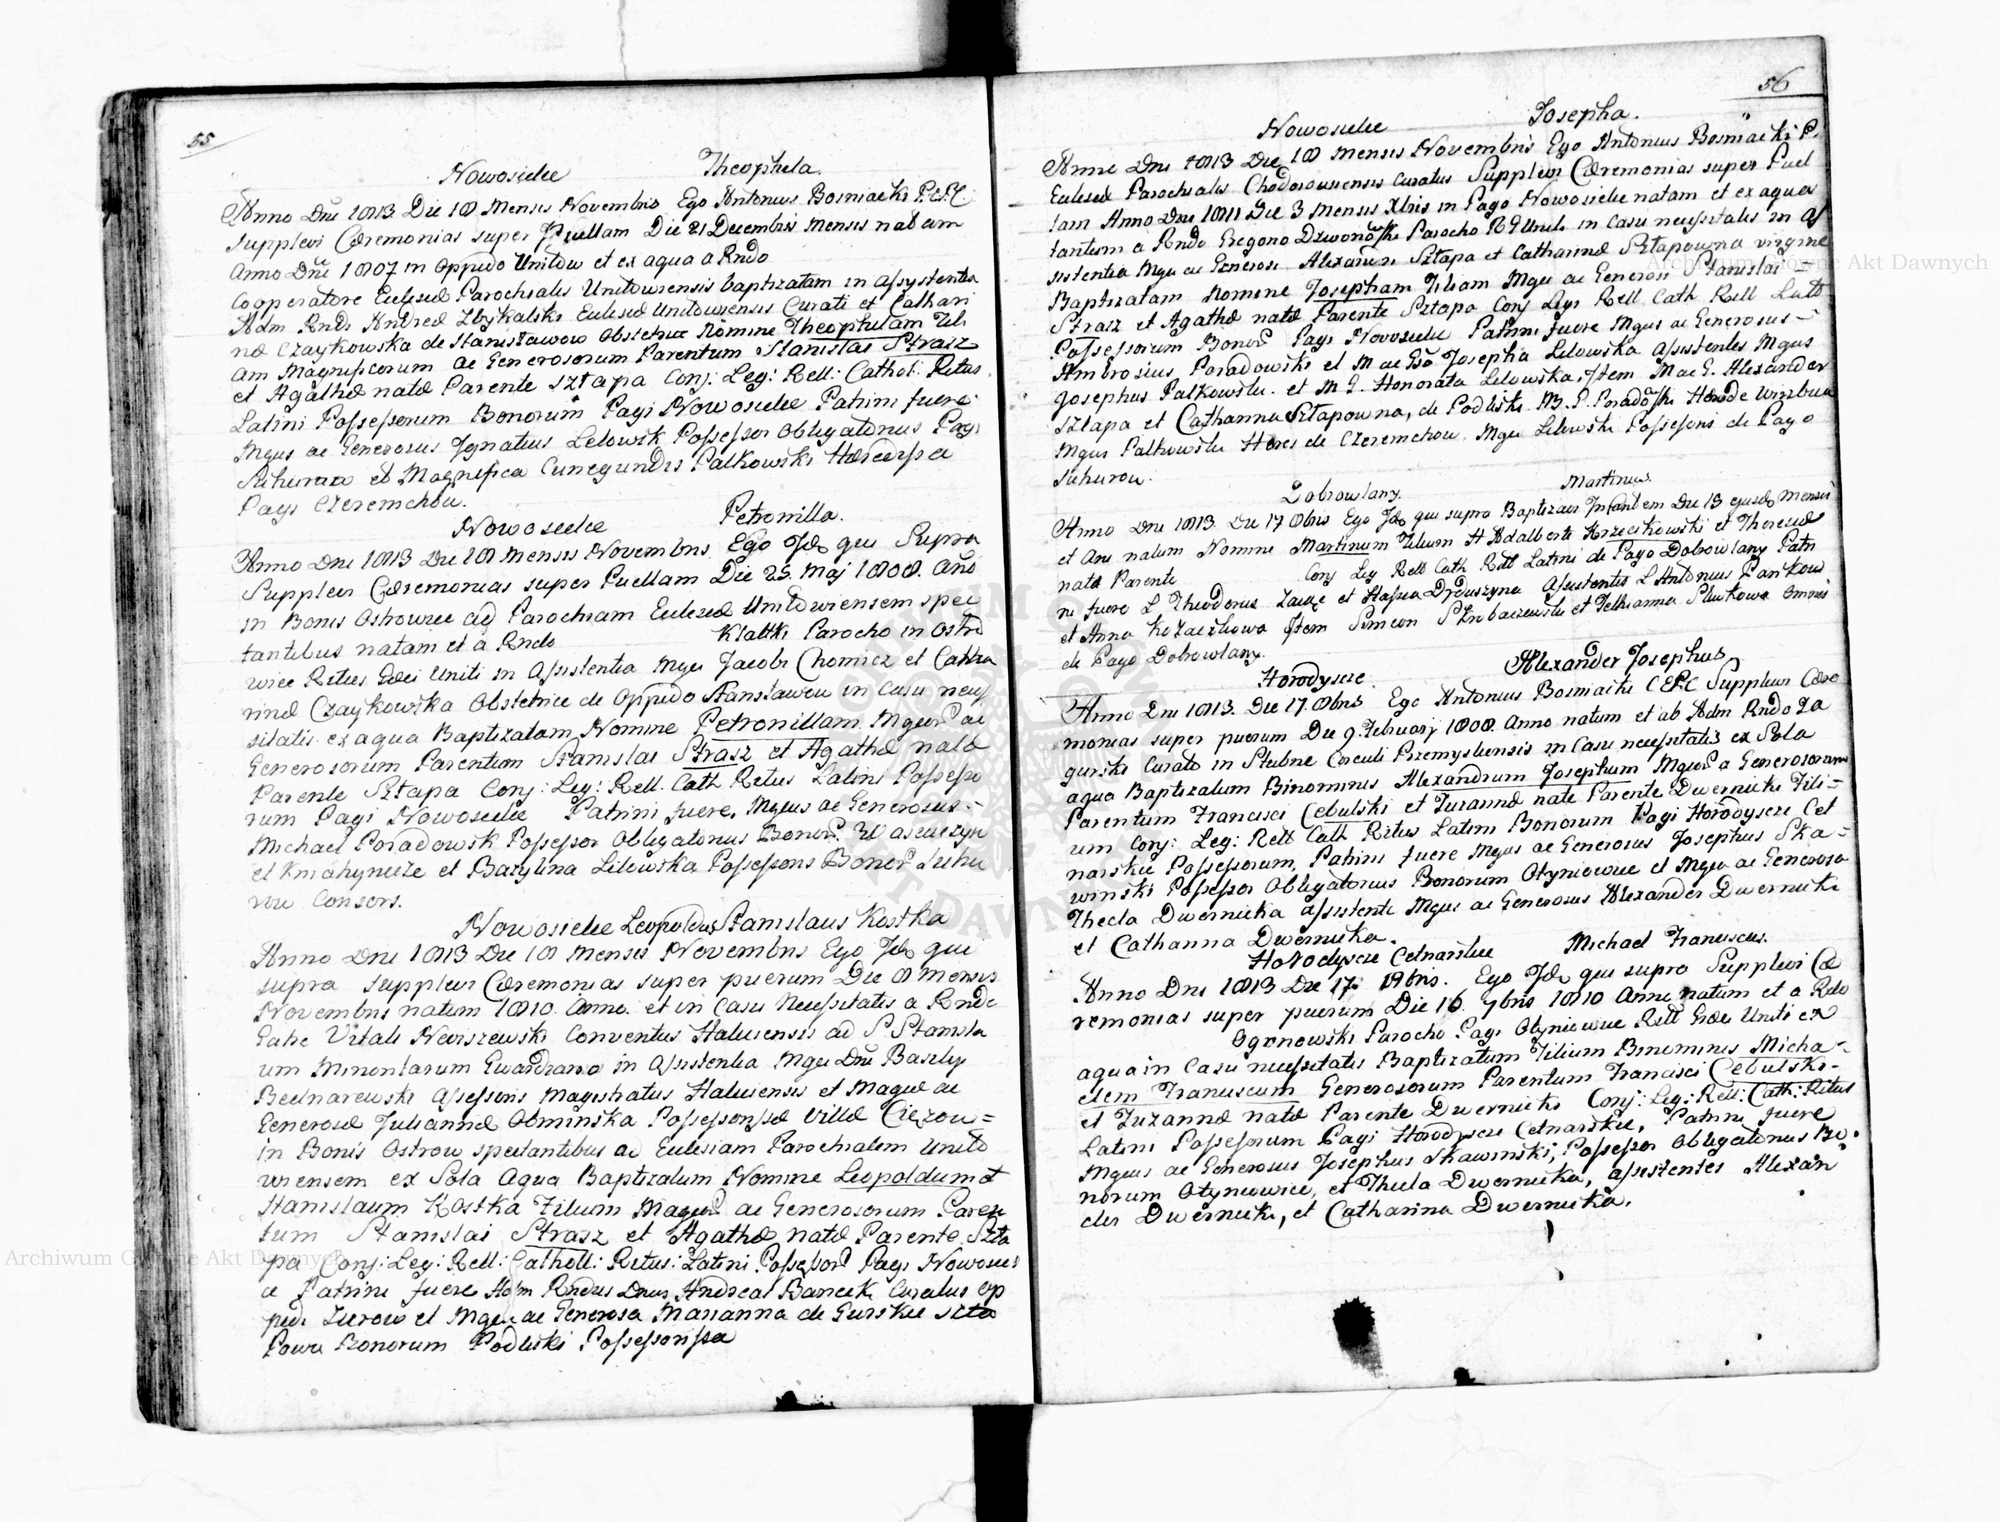 55
Nowosielce Theophila.
Anno Dni 1813 Die 18 Mensis Novembris Ego Antonius Bosniacki P.E.P.C
Supplevi Cæremonias super Puellam Die 21 Decembris Mensis natam
Anno Dni 1807 in Oppido Unitow et ex aqua a Rndo
Cooperatore Ecclesiæ Parochialis Unitowiensis baptizatam in assystentia
Adm Rndi Andreæ Zbykalski Ecclesiæ Unitowiensis Curati et Cathari
næ Czaykowska de Stanisławow Obstetrice Nomine Theophilam Fili
am Magnificorum ac Generosorum Parentum Stanislai Strasz
et Agathæ natæ Parente Sztapa Conj: Leg: Rell: Cathol: Ritus
Latini Possessorum Bonorum Pagi Nowosielce Patrini fuere
Mgus ac Generosus Ignatius Lelowsk Possessor Obligatorius Pagi
et Magnifica Cunegundis Palkowski
Pagi Czeremchow.
Nowosielce Petronilla.
Anno Dni 1813 Die 18 Mensis Novembris. Ego Id qui Supra
Supplevi Cæremonias super Puellam Die 25. Maj 1808. Año
in Bonis Ostrowiec ad Parochiam Ecclesiæ Unitowiensem spec
tantibus natam et a Rndo Klattki Parocho in Ostro
wiec Ritus Græci Uniti in Assistentia Mgci Jacobi Chomicz et Catha
rinæ Czaykowska Obstetrice de Oppido Stanisławow in Casu necess
sitatis ex aqua Baptizatam Nomine Petronillam Mgcor ac
Generosorum Parentum Stanislai Strasz et Agathæ natæ
Parente Sztapa Conj: Leg: Rell. Cath Ritus Latini Possesso
rum Pagi Nowosielce Patrini fuere, Mgnus ac Generosus
Michael Poradowsk Possessor Obligatorius Bonor
et Kniahynicze et Bazylina Lilowska Possessoris Bonor Suhu
row Consors.
Nowosielce Leopoldus Stanislaus Kostka
Anno Dni 1813 Die 18 Mensis Novembris Ego Id qui
supra supplevi Cæremonias super puerum Die 8 Mensis
Novembris natum 1810. Anno. et in Casu Necessitatis a Rndo
Patre Vitali Conventus Haliciensis ad S Stanisla
um Minoritarum Guardiano in Assistentia Mgci Dni Bazely
Bednarewski Assessoris Magistratus Haliciensis et Magcæ ac
Generosæ Julianna Obminska Possessorissæ Villæ Ciezow=
in Bonis Ostrow spectantibus ad Ecclesiam Parochialem Unito
wiensem ex Sola Aqua Baptizatum Nomine Leopoldum et
Stanislaum Kostka Filium Magcor ac Generosorum Paren
tum Stanislai Strasz et Agathæ natæ Parente Szta
pa Conj: Leg: Rell: Catholl: Ritus: Latini Possessor Pagi Nowosiel
ce Patrini fuere Adm Rndus Dnus Andreas Bancek Curatus Op
pidi Zurow et Mgca ac Generosa Marianna de Gurskie Szta
Powa Bonorum Podliski Possessorissa
56
Nowosielce Josepha.
Anno Dni 1813 Die 18 Mensis Novembris Ego Antonius Bosniacki P.
Ecclesiæ Parochialis Chodoroviensis Curatus Supplevi Cæremonias super Puel
lam Anno Dni 1811 Die 3 Mensis Xbris in Pago Nowosielce natam et ex aqua
tantum a Rndo Gregorio Dzwonowski Parocho R G Uniti in Casu necessitatis in As
sistentia Mgci ac Generosi Alexandri Sztapa et Catharinæ Sztapowna virgine
Baptizatam Nomine Josepham Filiam Mgci ac Generosi Stanislai =
Strasz et Agathæ natæ Parente Sztapa Conj Legi Rell Cath Rell Latt
Possessorum Bonor Pagi Nowosielce Patrini fuere Mgus ac Generosus
Ambrosius Poradowski et M ac Gsa Josepha Lilowska Assistentes Mgus
Josephus Palkowski. et M G. Honorata Lilowska, Item M ac G. Alexander
Sztapa et Catharina Sztapowna, de Podliski. M. G. Poradowski
Mgus Palkowski Heres de Czeremchow. Mgci Lilowski Possessoris de Pago
Suhurow.
Dobrowlany. Martinus.
Anno Dni 1813. Die 17 Obris Ego Id qui supra Baptizavi Infantem Die 13 ejusd Mensis
et Ani natum Nomine Martinum Filium Adalberti Krzeczkowski et Theresiæ
nata Parente Conj Leg Rell Cath Ritt Latini de Pago Dobrowlany Patri
ni fuere L Theodorus et Assistentis L Antonius
et Anna Kozaczkowa Item Simeon et omnes
de Pago Dobrowlany.
Horodyscze. Alexander Josephus
Anno Dni 1813. Die 17. Obris Ego Antonius Bosniacki C E P C Supplevi Cære
monias super puerum Die 9. February 1808. Anno natum et ab Adm Rndo Za
gurski Curato in Stubne Circuli Przemysliensis in Casu necessitatis ex Sola
aqua Baptizatum Binominis Alexandrum Josephum Mgcor a Generosorum
Parentum Francisci Cebulski et Zuzannæ natæ Parente Dwernicki Fili=
um Conj: Leg: Rell Cath Ritus Latini Bonorum Pagi Horodyscze Cet
narskie Possessorum, Patrini fuere Mgus ac Generosus Josephus Ska=
winski Possessor Obligatorius Bonorum Otyniowice et Mgca ac Generosa
Thecla Dwernicka assistente Mgus ac Generosus Alexander Dwernicki
et Catharina Dwernicka.
Horodyscze Cetnarskie Michael Franciscus.
Anno Dni 1813 Die 17. 9bris. Ego Id qui supra Supplevi Cæ
remonias super puerum Die 16 7bris 1810 Anni natum et a Rdo
Ogonowski Parocho Pagi Otyniowice Ritt Græci Uniti ex
aqua in Casu necessitatis Baptizatum Filium Binominis Micha-
elem Franciscum Generosorum Parentum Francisci Cebulski-
et Zuzannæ natæ Parente Dwernicki Conj: Leg: Rell: Cath: Ritus
Latini Possessorum Pagi Horodyscze Cetnarskie, Patrini fuere
Mgnus ac Generosus Josephus Skawinski, Possessor Obligatorius Bo.
norum Otyniowice, et Thecla Dwernicka, Assistentes Alexan
der Dwernicki, et Catharina Dwernicka.
Archiwum Główne Akt Dawnych
Archiwum Główne Akt Dawnych